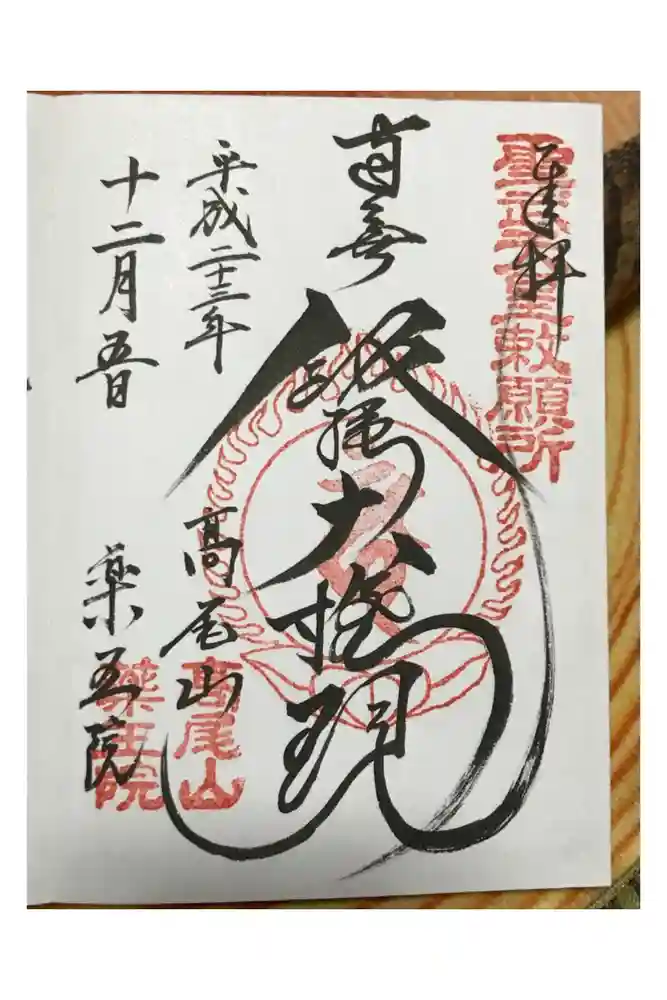 奉拝
聖武天皇勅願所
南無
飯縄大権現
平成二十三年
高尾山
高尾山
十二月五日
薬王院
薬王院